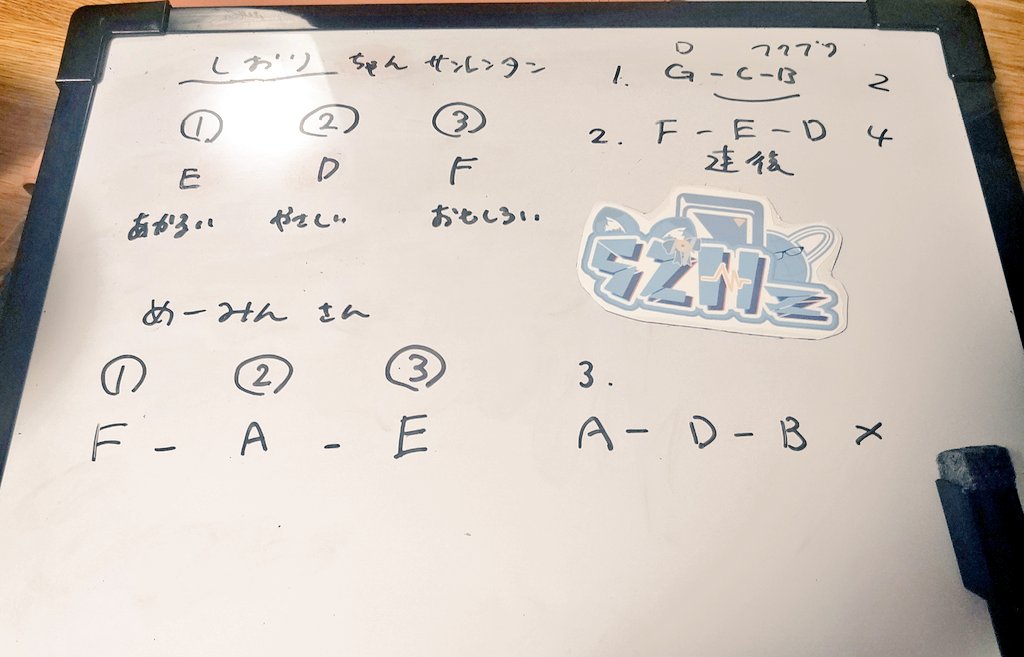 しおり ちゃん サンレンタン
① ② ③
E D F
あかるい やさしい おもしろい
めーみん さん
① ② ③
F - A - E
D フブブブ
1. G - C - B 2
2. F - E - D 4
3.
A - D - B ×